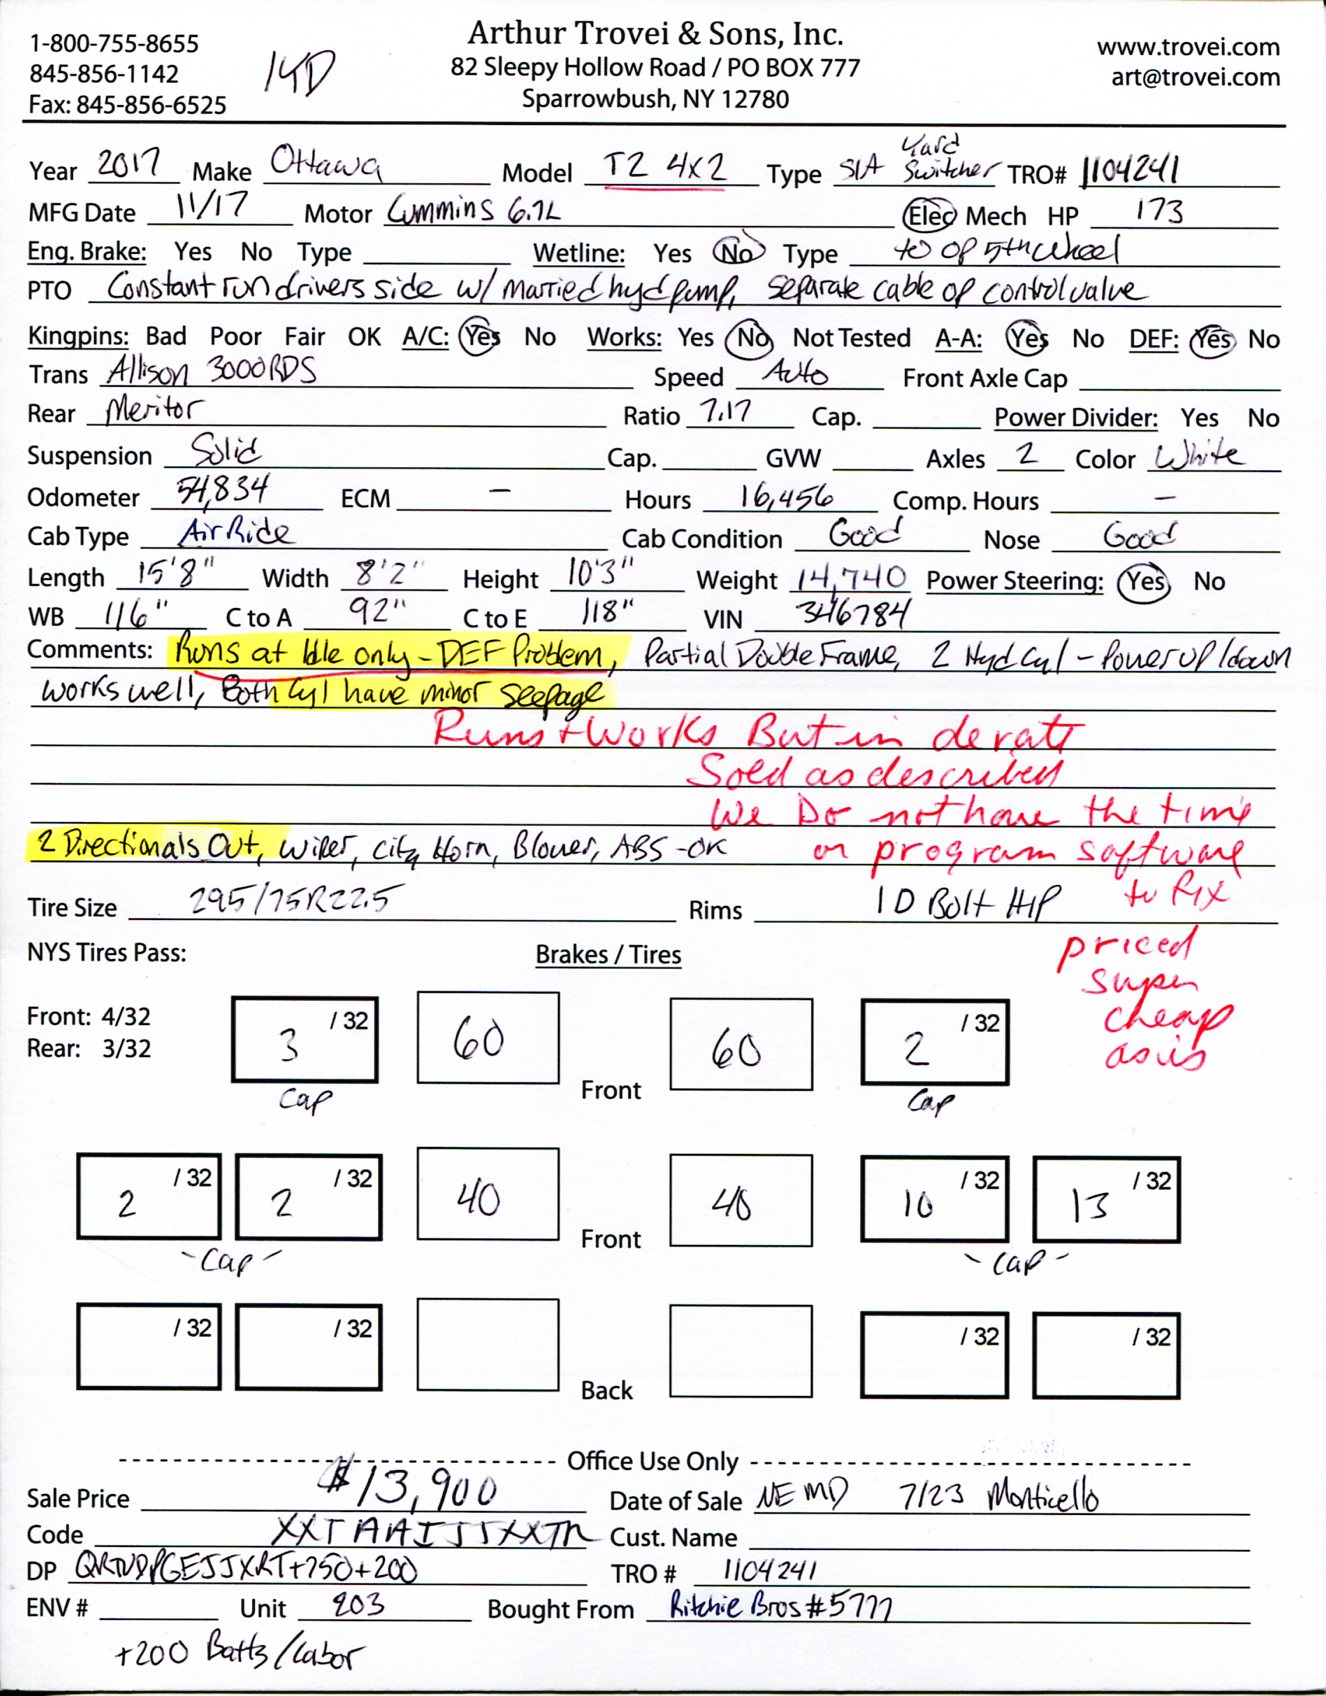 1-800-755-8655
845-856-1142
Fax: 845-856-6525
Arthur Trovei & Sons, Inc.
82 Sleepy Hollow Road / PO BOX 777
Sparrowbush, NY 12780
www.trovei.com
art@trovei.com
Year 2017 Make Ottawa Model T2 4x2 Type S/A Yard Switcher TRO# 1104241
MFG Date 11/17 Motor Cummins 6.7L Elec Mech HP 173
Eng. Brake: Yes No Type Wetline: Yes No Type to op 5th wheel
PTO Constant run drivers side w/ married hyd pump, separate cable op control valve
Kingpins: Bad Poor Fair OK A/C: Yes No Works: Yes No Not Tested A-A: Yes No DEF: Yes No
Trans Allison 3000RDS Speed Auto Front Axle Cap
Rear Meritor Ratio 7.17 Cap. Power Divider: Yes No
Suspension Solid Cap. GVW Axles 2 Color White
Odometer 54,834 ECM - Hours 16,456 Comp. Hours -
Cab Type Air Ride Cab Condition Good Nose Good
Length 15'8" Width 8'2" Height 10'3" Weight 14,740 Power Steering: Yes No
WB 116" C to A 92" C to E 118" VIN 346784
Comments: Runs at Idle only - DEF Problem, Partial Double Frame, 2 Hyd Cyl - Power up/down
works well, Both Cyl have minor seepage
Runs + Works But in derate
Sold as described
We Do not have the time
or program software
to Fix
2 Directionals Out, Wiper, City Horn, Blower, ABS - OK
Tire Size 295/75R22.5 Rims 10 Bolt HP
priced
super
cheap
as is
NYS Tires Pass:
Brakes / Tires
Front: 4/32
Rear: 3/32
3 /32 60 Front 60 2 /32
Cap Cap
2 /32 2 /32 40 Front 40 10 /32 13 /32
- Cap - - Cap -
/32 /32 Back /32 /32
Office Use Only
Sale Price $13,900 Date of Sale NEMD 7/23 Monticello
Code Cust. Name
DP +750+200 TRO # 1104241
ENV # Unit 203 Bought From Ritchie Bros #5777
+200 Batts/Labor